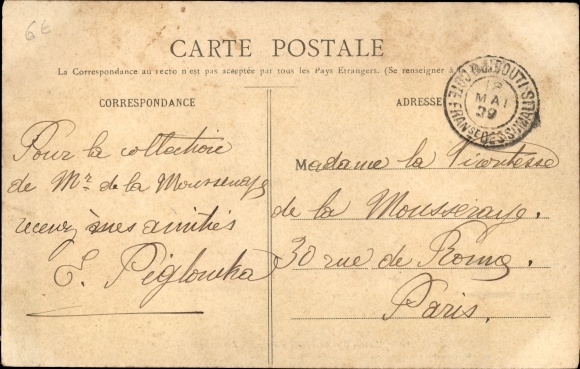 6€
CARTE POSTALE
La Correspondance au recto n'est pas acceptée par tous les Pays Etrangers. (Se renseigner à la
CORRESPONDANCE
Pour la collection
de Mr. de la Moussenaye
recevez mes amitiés
Piglowka
ADRESSE
DJIBOUTI
CÔTE FRANSE DES SOMALIS
MAI
Madame la Vicomtesse
de la Mousseraye.
30 rue de Rome.
Paris.